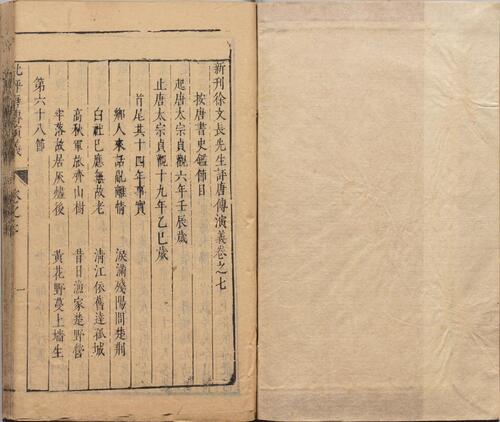 新刊徐文長先生評唐傳演義卷之七
按唐書史鑑節目
起唐太宗貞觀六年壬辰歲
止唐太宗貞觀十九年乙巳歲
首尾共十四年事實
鄉人來話亂離情 淚滿殘陽問楚荊
白社已應無故老 清江依舊遶孤城
高秋軍旅齊山樹 昔日漁家是野營
牢落故居灰燼後 黃花野蔓上墻生
第六十八節
批評唐傳演義 卷之七 一